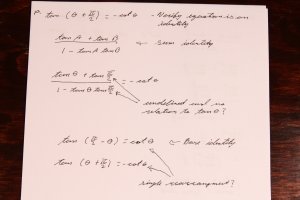 P. tan (θ + π/2) = -cot θ - Verify equation is an identity
tan A + tan B
1 - tan A tan B
← Sum identity
tan θ + tan π/2 = -cot θ
1 - tan θ tan π/2
undefined and no relation to tan θ?
tan (π/2 - θ) = cot θ ← Base identity
tan (θ + π/2) = -cot θ
simple rearrangement?